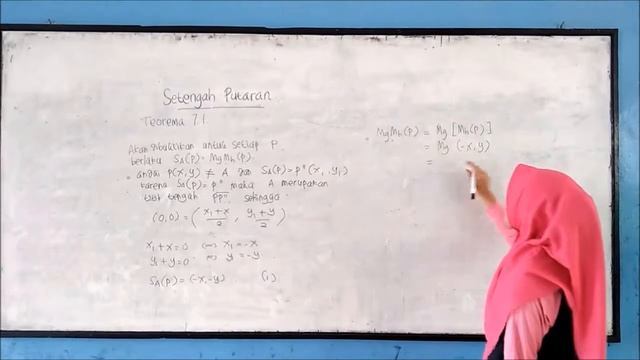 Setengah Putaran
Teorema 7.1.
Akan dibuktikan untuk setiap P
berlaku SA(P) = MgMh(P).
andai P(x,y) ≠ A dan SA(P) = P"(x1,y1)
karena SA(P) = P" maka A merupakan
titik tengah PP" sehingga
(0,0) = (x1+x/2, y1+y/2)
x1+x=0 ⇔ x1=-x
y1+y=0 ⇔ y=-y
SA(P) = (-x,-y) (1)
MgMh(P) = Mg [Mh(P)]
= Mg (-x,y)
=